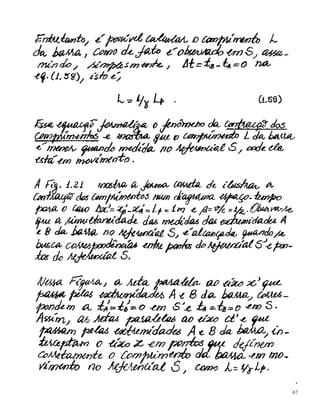 Entretanto, é possível calcular o comprimento L
da barra, como de fato é observado em S, assu-
mindo, simplesmente, Δt = t_B - t_A = 0 na
eq. (1.58), isto é,
L = 1/γ L_P . (1.59)
Essa equação formaliza o fenômeno da Contração dos
Comprimentos e mostra que o comprimento L da barra
é menor quando medida no referencial S, onde ela
está em movimento.
A Fig. 1.21 mostra a forma correta de ilustrar a
Contração dos Comprimentos num diagrama espaço-tempo
para o caso Δx' = x'_B - x'_A = L_P = 1m e β = v/c = 1/2. Observa-se
que a simultaneidade das medidas das extremidades A
e B da barra no referencial S, é alcançada quando se
busca correspondências entre pontos do referencial S' e pon-
tos do referencial S.
Nessa Figura, a reta paralela ao eixo x' que
passa pelas extremidades A e B da barra, corres-
pondem a t'_A = t'_B = 0 em S' e t_A = t_B = 0 em S.
Assim, as retas paralelas ao eixo ct' e que
passam pelas extremidades A e B da barra, in-
terceptam o eixo x em pontos que definem
corretamente o comprimento da barra em mo-
vimento no referencial S, como L = 1/γ L_P.
67